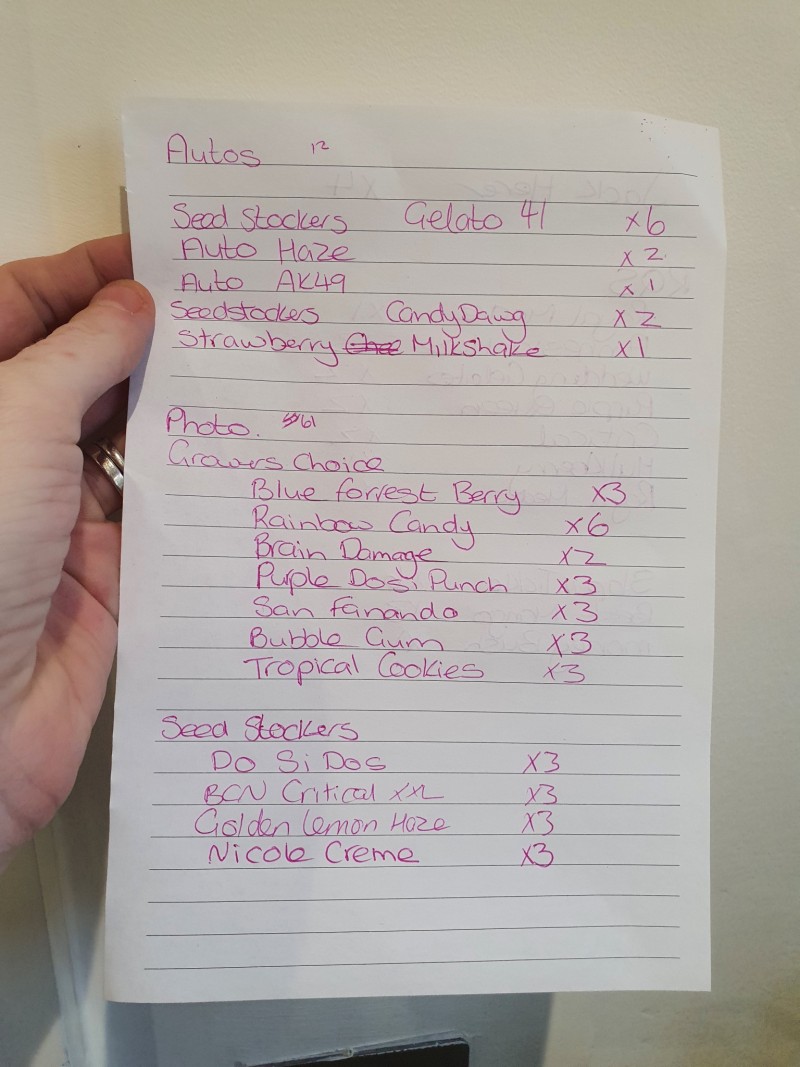 Autos 12
Seed Stockers Gelato 41 x6
Auto Haze x2
Auto AK49 x1
Seedstockers CandyDawg x2
Strawberry Milkshake x1
Photo. 61
Growers Choice
Blue forrest Berry x3
Rainbow Candy x6
Brain Damage x2
Purple Dosi Punch x3
San fanando x3
Bubble Gum x3
Tropical Cookies x3
Seed Stockers
Do Si Dos x3
BCN Critical XXL x3
Golden Lemon Haze x3
Nicole Creme x3